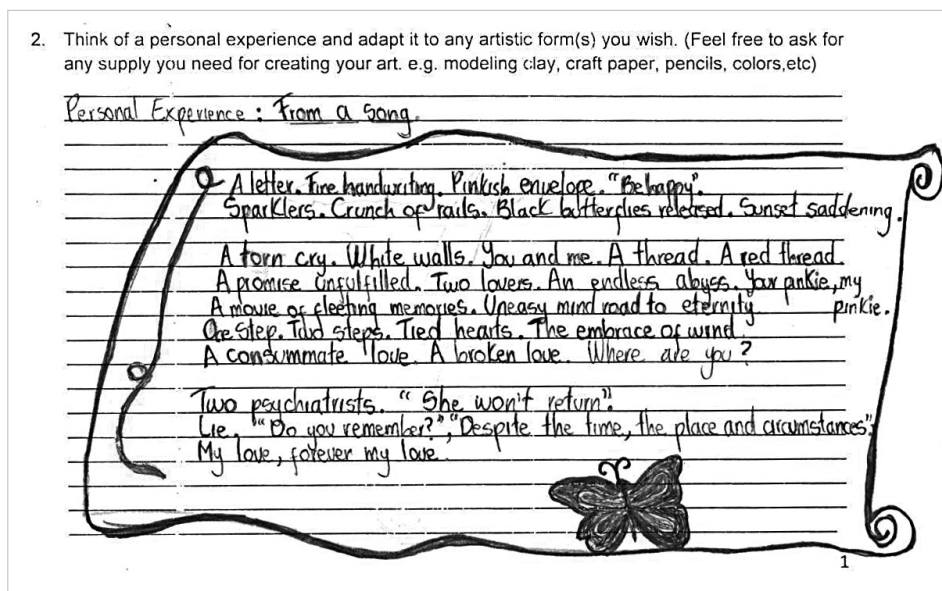 2. Think of a personal experience and adapt it to any artistic form(s) you wish. (Feel free to ask for
any supply you need for creating your art. e.g. modeling clay, craft paper, pencils, colors,etc)
Personal Experience : From a Song.
A letter. Fine handwriting. Pinkish envelope. "Be happy".
Sparklers. Crunch of rails. Black butterflies released. Sunset saddening.
A torn cry. White walls. You and me. A thread. A red thread.
A promise unfulfilled. Two lovers. An endless abyss. Your pinkie, my
pinkie.
A movie of fleeting memories. Uneasy mind road to eternity
One step. Two steps. Tied hearts. The embrace of wind.
A consummate love. A broken love. Where are you?
Two psychiatrists. "She won't return".
Lie. "Do you remember?", "Despite the time, the place and circumstances",
My love, forever my love.
1